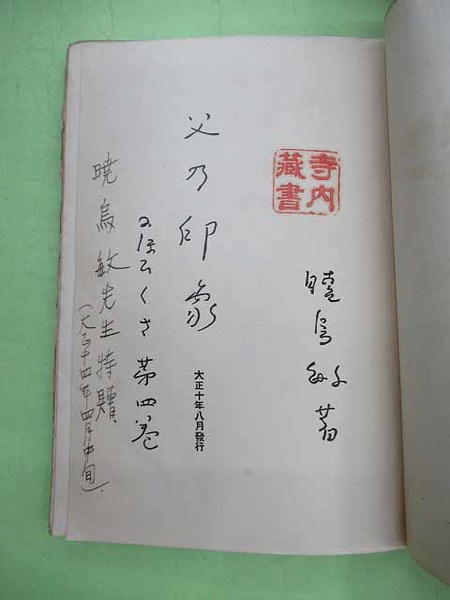 寺内
藏書
暁烏敏著
父乃印象
にほひくさ 第四巻
大正十年八月發行
暁烏敏先生特贈、
(大正十四年四月中旬).